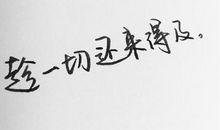 趁一切还来得及。